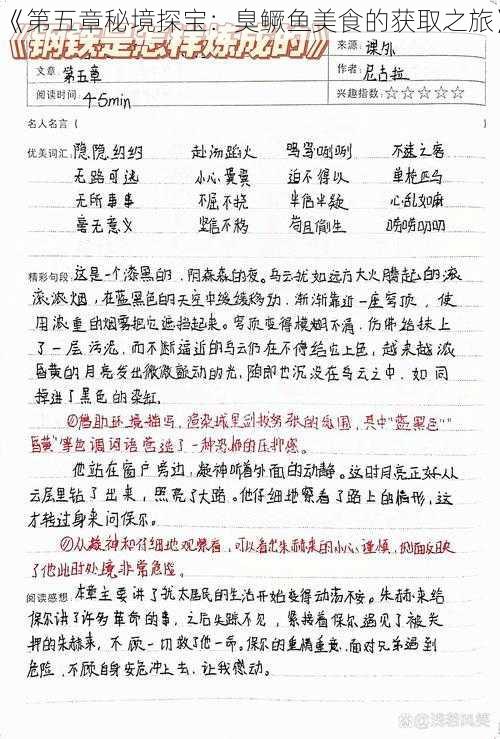 《第五章秘境探宝：臭鳜鱼美食的获取之旅，
《钢铁是怎样炼成的》
来源：课外
文章：第五章
作者：尼古拉
阅读时间：45min
兴趣指数：☆☆☆☆☆
名人名言（
优美词汇 隐隐约约 赴汤蹈火 骂骂咧咧 不速之客
无路可逃 小心翼翼 迫不得以 单枪匹马
无所事事 不屈不挠 半信半疑 心乱如麻
毫无意义 坚信不移 苟且偷生 唠唠叨叨
精彩句段：这是一个漆黑的，阴森森的夜。乌云犹如远方大火腾起的滚
滚浓烟，在蓝黑色的天空中缓缓移动，渐渐靠近一座穹顶，使
用浓重的烟雾把它遮挡起来。穹顶变得模糊不清，仿佛给抹上
了一层污泥，而不断逼近的乌云仍在不停给它上色，越来越浓
昏黄的月亮发出微微颤动的光，随即也沉没在乌云之中，如同
掉进了黑色的染缸，
①借助环境描写，渲染城里到处紧张的氛围，其中"蓝黑色"
昏黄"等色调词语营造了一种恐怖的压抑感。
他站在窗户旁边，凝神听着外面的动静。这时月亮正好从
云层里钻了出来，照亮了大路。他仔细地察看了路上的情形，这
才转过身来问保尔。
②从凝神和仔细地观察看，可以看出朱赫来的小心谨慎，侧面反映
了他此时处境非常危险。
阅读感想：本章主要讲了犹太居民的生活开始变得动荡不安。朱赫来给
保尔讲了许多革命的事，之后失踪不见，紧接着保尔遇见了被关
押的朱赫来，不顾一切救了他一命。保尔的重情重意，面对兄弟遇到
危险，不顾自身安危冲上去，让我感动。